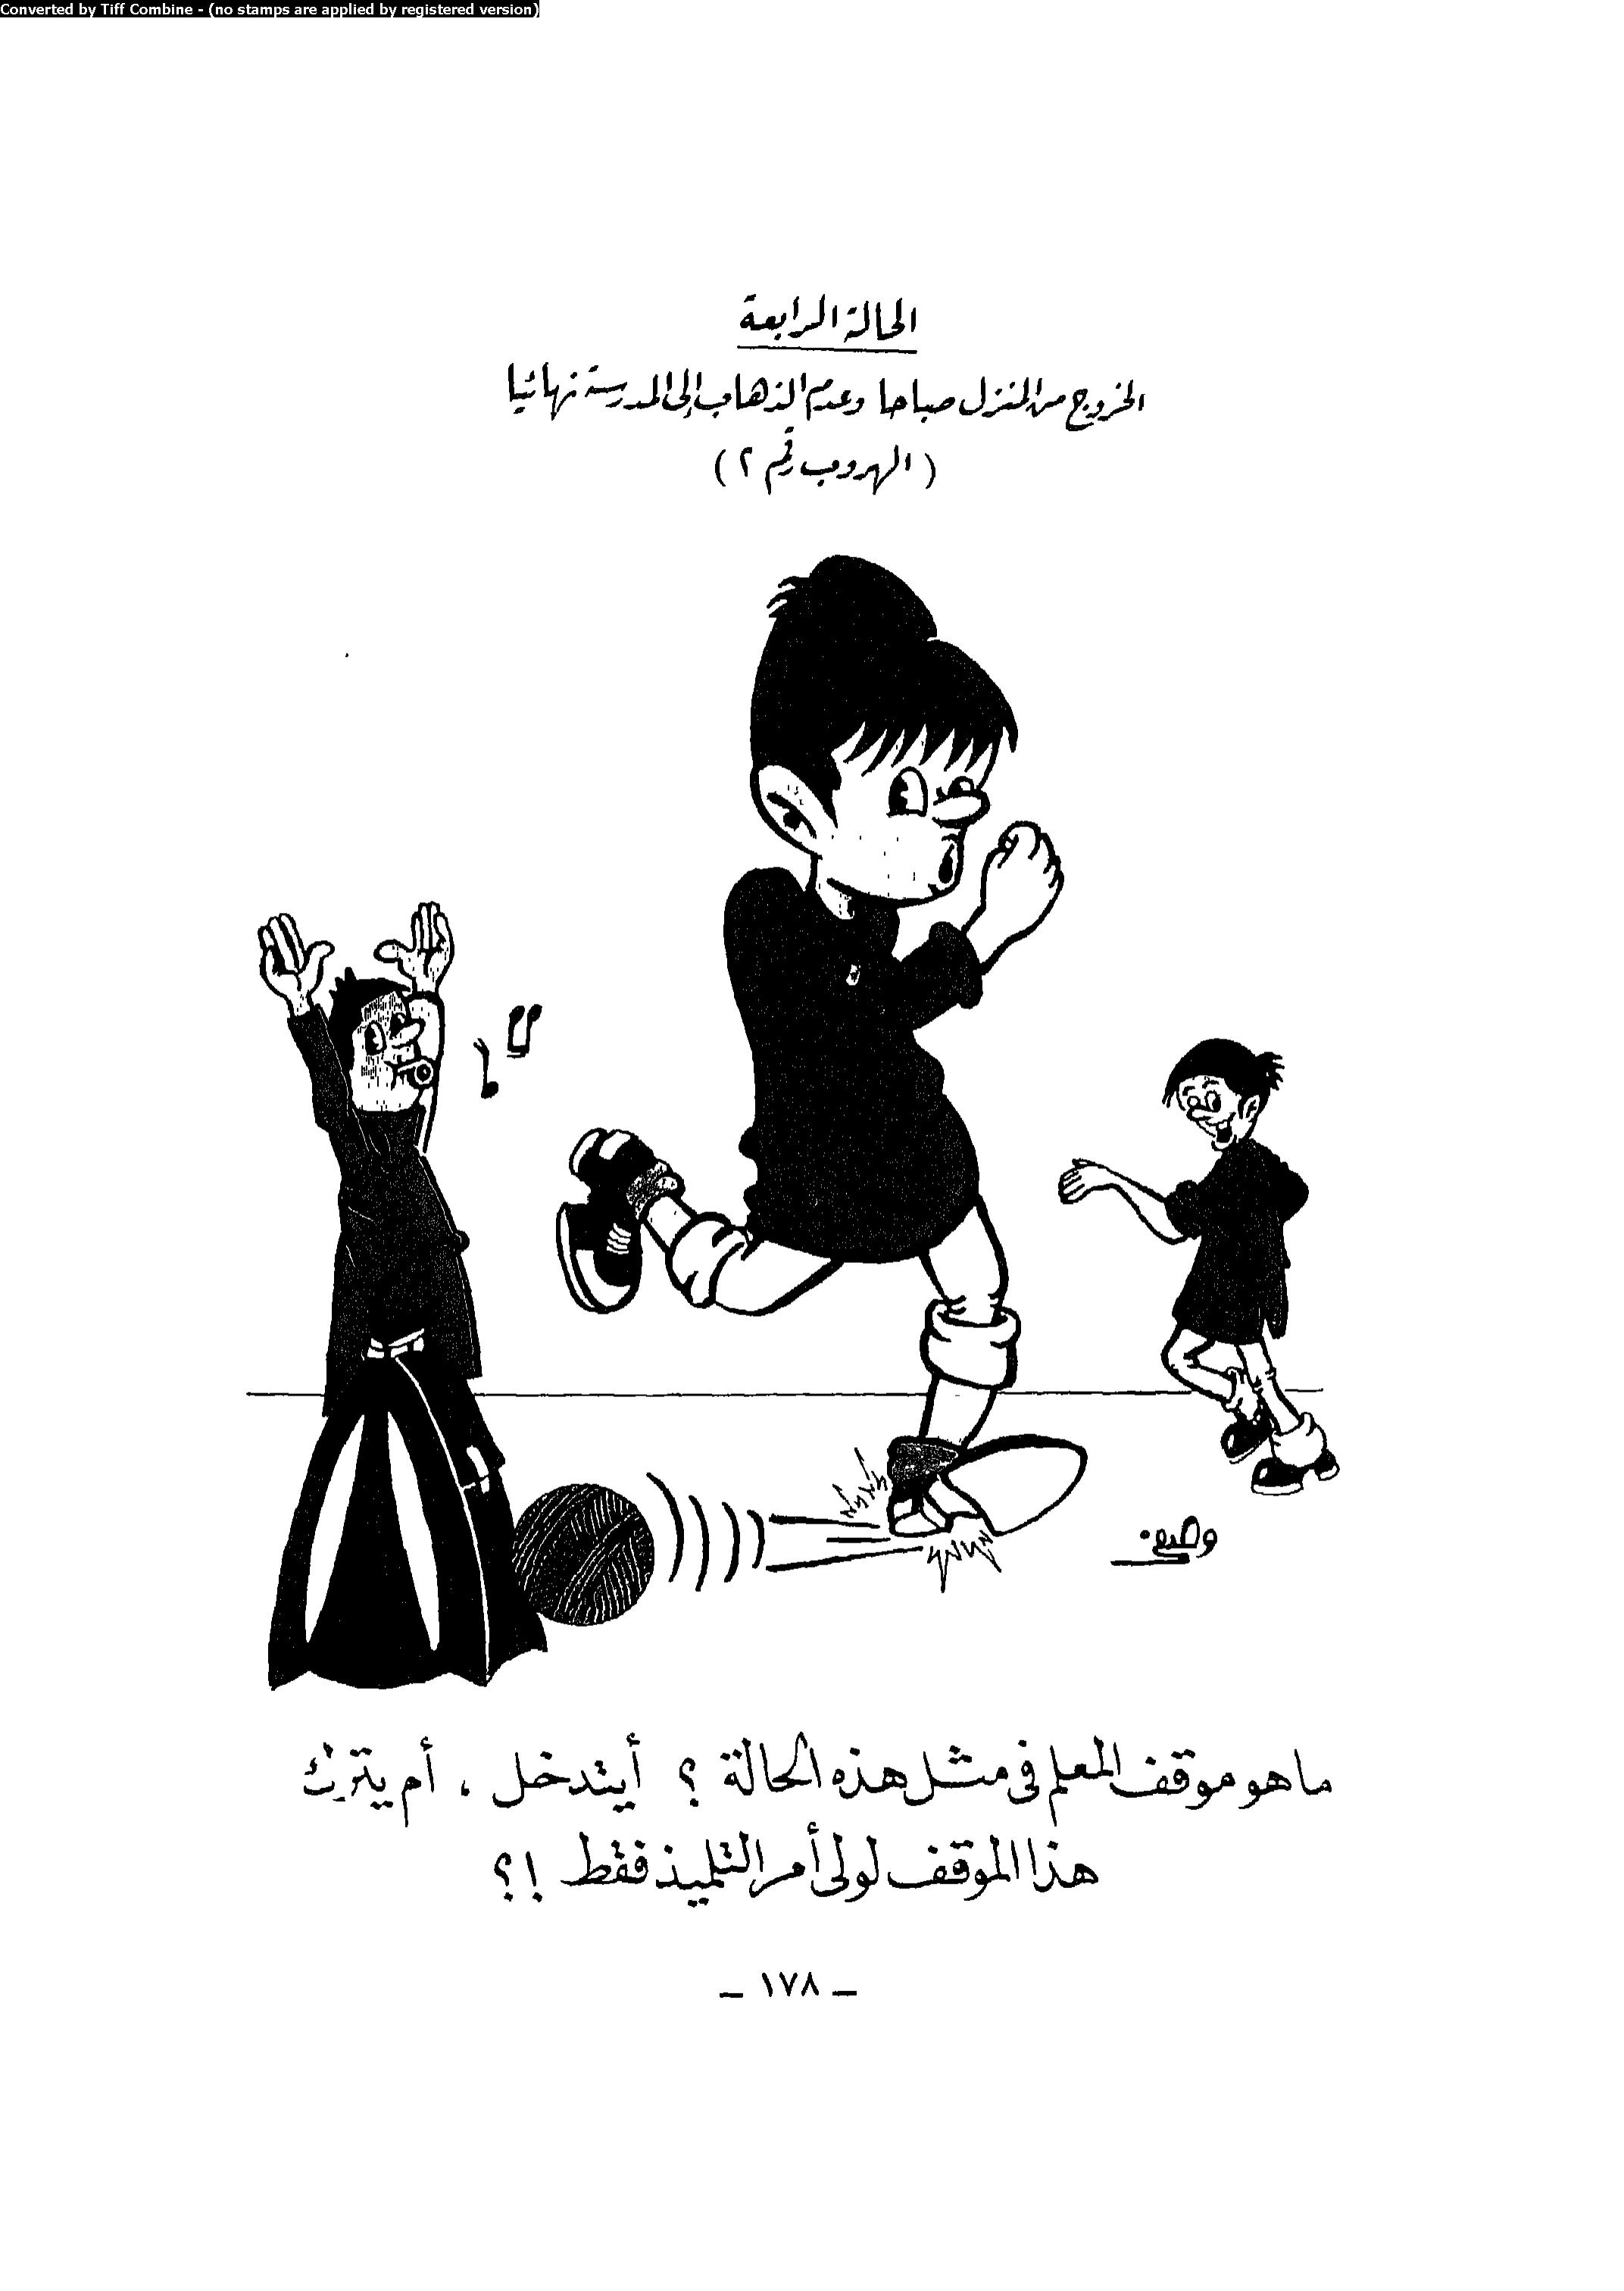 Converted by Tiff Combine - (no stamps are applied by registered version)
الحالة الرابعة
الخروج من المنزل صباحا وعدم الذهاب إلى المدرسة نهائيا
( الهروب رقم ٢ )
وصيف
ما هو موقف المعلم فى مثل هذه الحالة ؟ أيتدخل ، أم يترك
هذا الموقف لولى أمر التلميذ فقط !؟
ـ ١٧٨ ـ